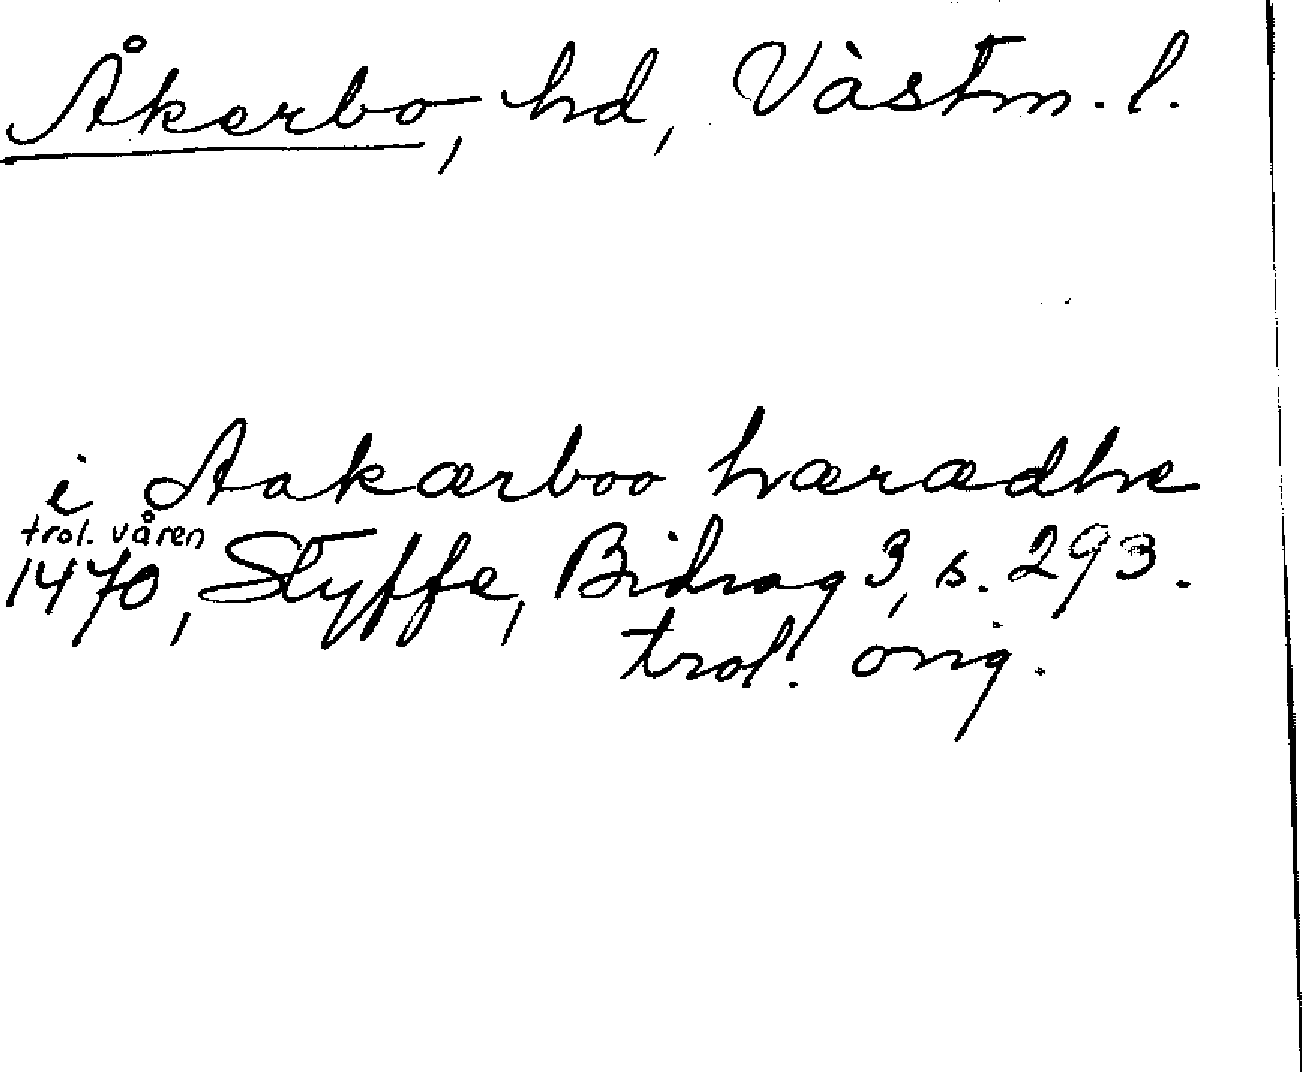 Åkerbo, hd, Västm. l.
i Aakærboo hærædhe
trol. våren
1470, Styffe, Bidrag 3, s. 293.
trol. orig.